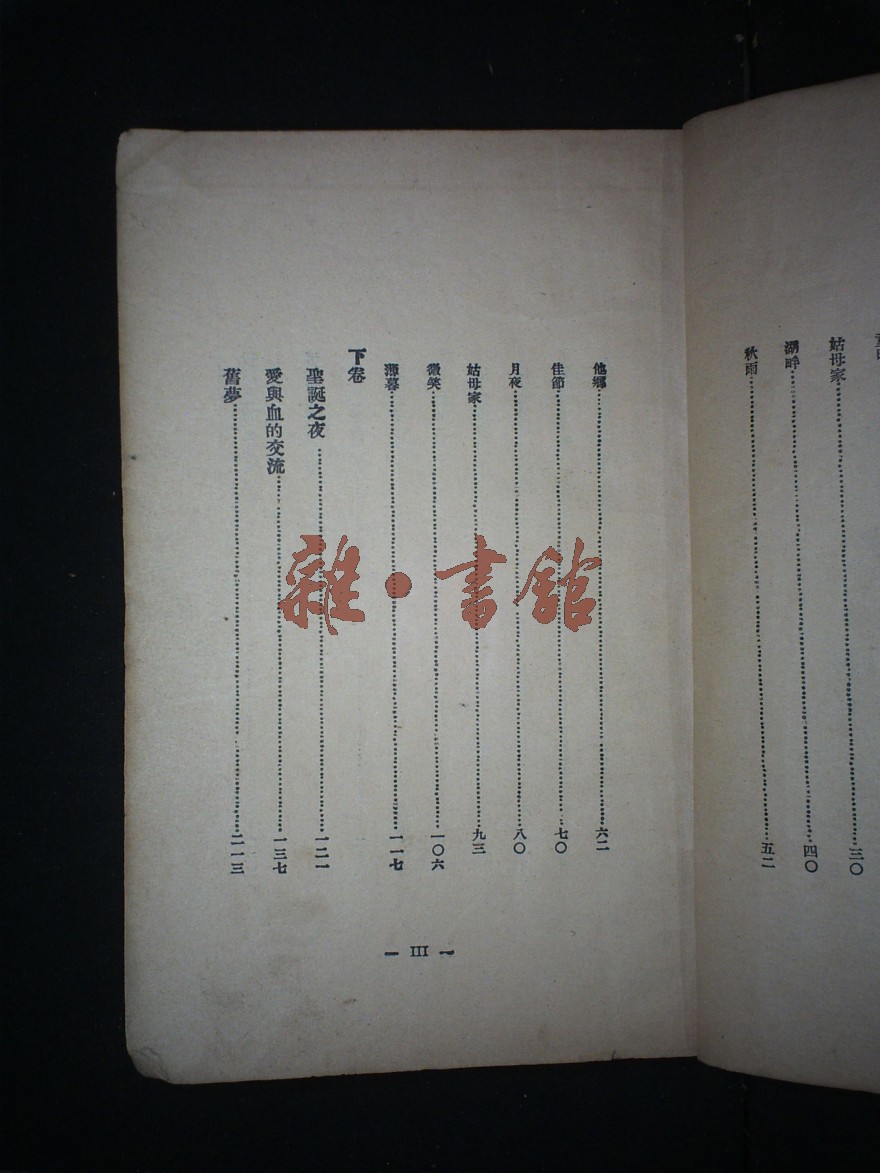 姑母家……三〇
湖畔……四〇
秋雨……五二
他鄉……六二
佳節……七〇
月夜……八〇
姑母家……九三
微笑……一〇六
薄暮……一一七
下卷
聖誕之夜……一二一
愛與血的交流……一三七
舊夢……二一三
— III —
雜·書館